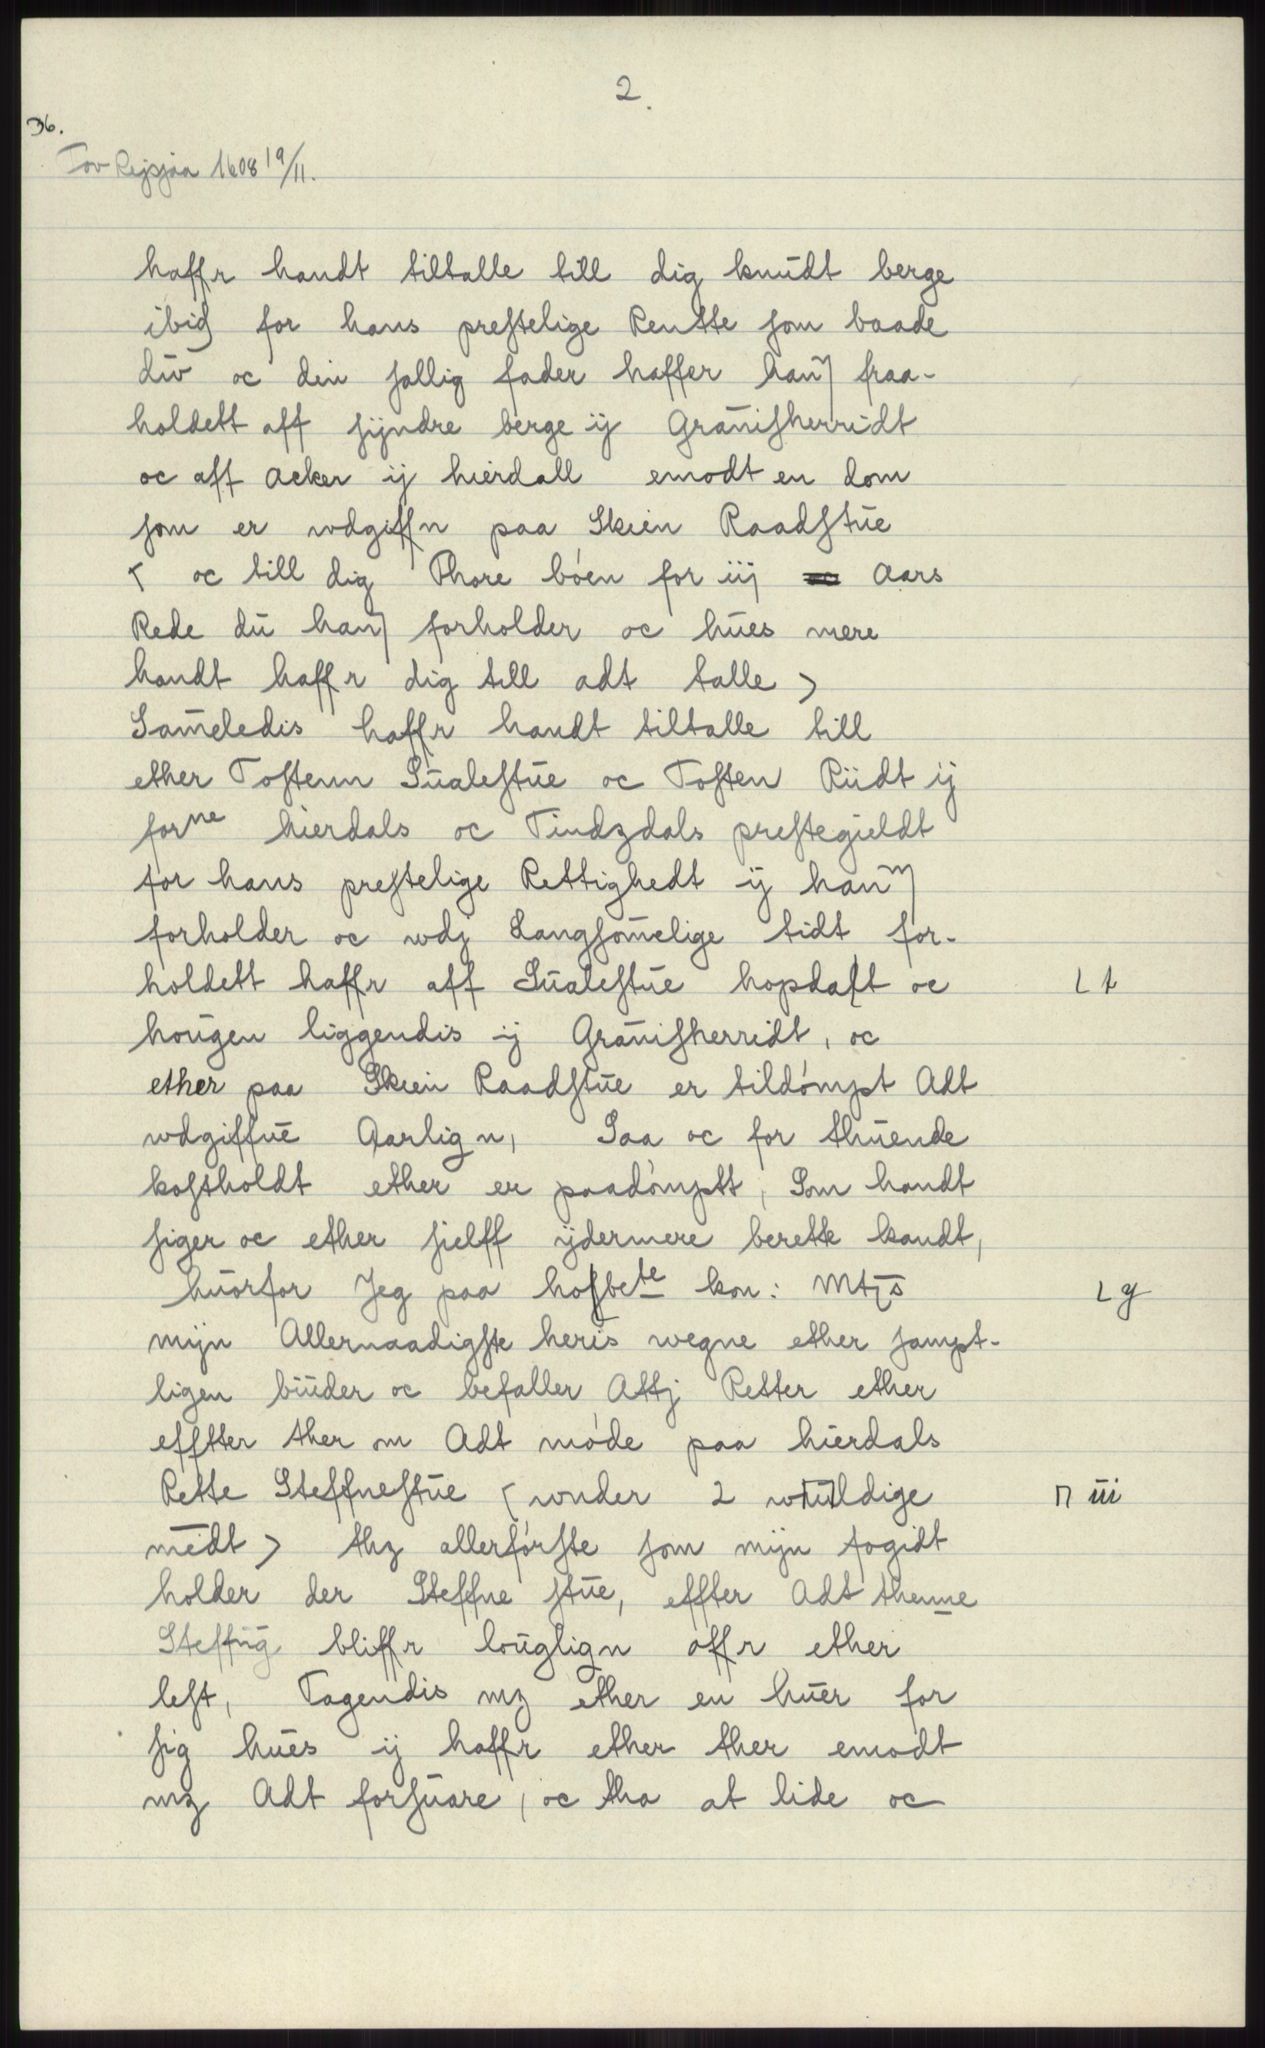 2.
36.
Tov Rejsjaa 1608 19/11.
haffr handt tiltalle till dig knudt berge
ibid for hans prestelige Rentte som baade
du oc din sallig fader haffer han fraa-
holdett aff syndre berge ij Granisherridt
oc aff acker ij hierdall emodt en dom
som er wdgiffn paa Skien Raadstue
< oc till dig Thore bøen for iij aars
Rede du han forholder oc hues mere
handt haffr dig till adt talle >
Sameledis haffr handt tiltalle till
ether Tostenn Sualestue oc Tosten Riidt ij
forne hierdals oc Tindzdals prestegieldt
for hans prestelige Rettighedt ij han
forholder oc wdj Langsomelige tidt for-
holdett haffr aff Sualestue hopdalt oc
L t
hougen liggendis ij Granisherridt, oc
ether paa Skien Raadstue er tildømpt Adt
wdgiffue Aarlign, Saa oc for thuende
kostholdt ether er paadømptt, Som handt
siger oc ether sielff ijdermere berette kandt,
huorfor Jeg paa hosbete kon: Mtjs
L g
mijn Allernaadigste heris wegne ether sampt-
ligen biuder oc befaller Attj Retter ether
efftter ther om Adt møde paa hierdals
Rette Steffnestue < wnder 2 wuldige
⊓ iii
medt > thz allerførste som mijn fogidt
holder der Steffne stue, effter Adt thenne
Steffng bliffr louglign offr ether
lest, Tagendis mz ether en huer for
sig hues ij haffr ether ther emodt
mz Adt forsuare, oc tha at lide oc